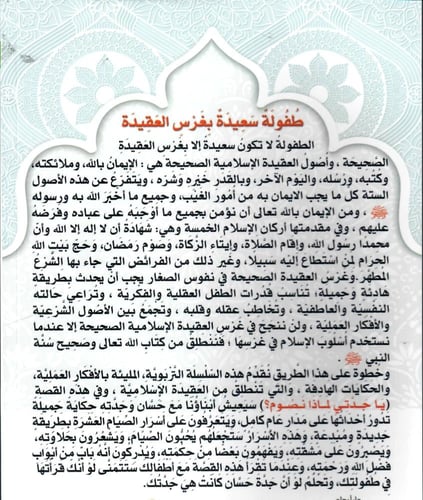 طُفُولَةٌ سَعِيدَةٌ بِغَرْسِ العَقِيدَة
الطفولةُ لا تكونُ سعيدةً إلا بغَرْسِ العَقِيدَةِ
الصَّحِيحَة ، وأصُول العقيدة الإسلامية الصحيحة هي : الإيمانُ بالله، وملائكته،
وكُتُبه، ورُسُله، واليَوْم الآخر، وبالقدر خَيْرِه وشَرِّه ، ويَتَفَرَّع عن هذه الأصول
الستة كل ما يجب الايمان به من أمُور الغَيْب، وجميع ما أخبَرَ الله به ورسوله
ﷺ ، ومن الإيمان بالله تعالى أن نؤمن بجميع ما أوْجَبَهُ على عباده وفَرَضَهُ
عليهم ، وفي مقدمتها أركان الإسلام الخمسة وهي: شهادَة أن لا إله إلا الله وأنَّ
محمدا رسول الله، وإقام الصَّلاة، وإيتاء الزَّكاة، وصَوْم رَمَضَان، وحَجّ بَيْتِ الله
الحرام لمن استطاع إليه سبيلا، وغير ذلك من الفرائض التي جاء بها الشَّرْعُ
المطهَّر. وغَرْسُ العقيدة الصحيحة في نفوس الصغار يجب أن يحدث بطريقة
هادئة وجميلة؛ تناسب قدرات الطفل العقلية والفكريَّة ، وتُراعِي حالته
النفسيَّة والعاطفيَّة ، وتخاطب عقله وقلبه ، وتجمَعُ بين الأصول الشَّرْعيَّة
والأفكار العمَليَّة ، ولن ننجح في غَرْس العقيدة الإسلامية الصحيحة إلا عندما
نستخدم أسلوب الإسلام في غرسها ؛ فننطلق من كتاب الله تعالى وصحيح سُنَّة
النبي ﷺ .
وخطوة على هذا الطريق نُقدِّمُ هَذِهِ السِّلْسِلَة التَّرْبَوِيَّة، المليئة بالأفكار العمليَّة،
والحكايات الهادفة ، والتي تنطلق من العَقِيدَة الإسْلامِيَّة ، وفي هذه القصة
(يا جَدتي لماذا نصـوم؟) سَيَعيش أبْنَاؤُنا مَعَ حَسَّان وَجَدَّتِه حكاية جميلةً
تدُور أحداثها على مدار عام كامل، ويَتَعرَّفون على أسرار الصِّيَام العَشَرة بطريقة
جَديدةٍ ومُبدعة، وهذه الأسْرار ستَجْعلهم يُحبُّون الصِّيَام؛ ويشعُرُون بحَلاوَتِه،
ويَصبرُون على مَشقَّتِه، ويَفهَمُون بعْضا من حِكمَتِه، ويُدركُون أنه بَابٌ مِن أبوابِ
فضل الله ورَحْمَتِه، وعندما تقرأ هذه القصة مع أطفالك ستتمنى لو أنك قرأتها
في طفولتك، وتحلمُ لو أنَّ جدَّة حَسَّان كانتْ هيَ جَدَّتَك.